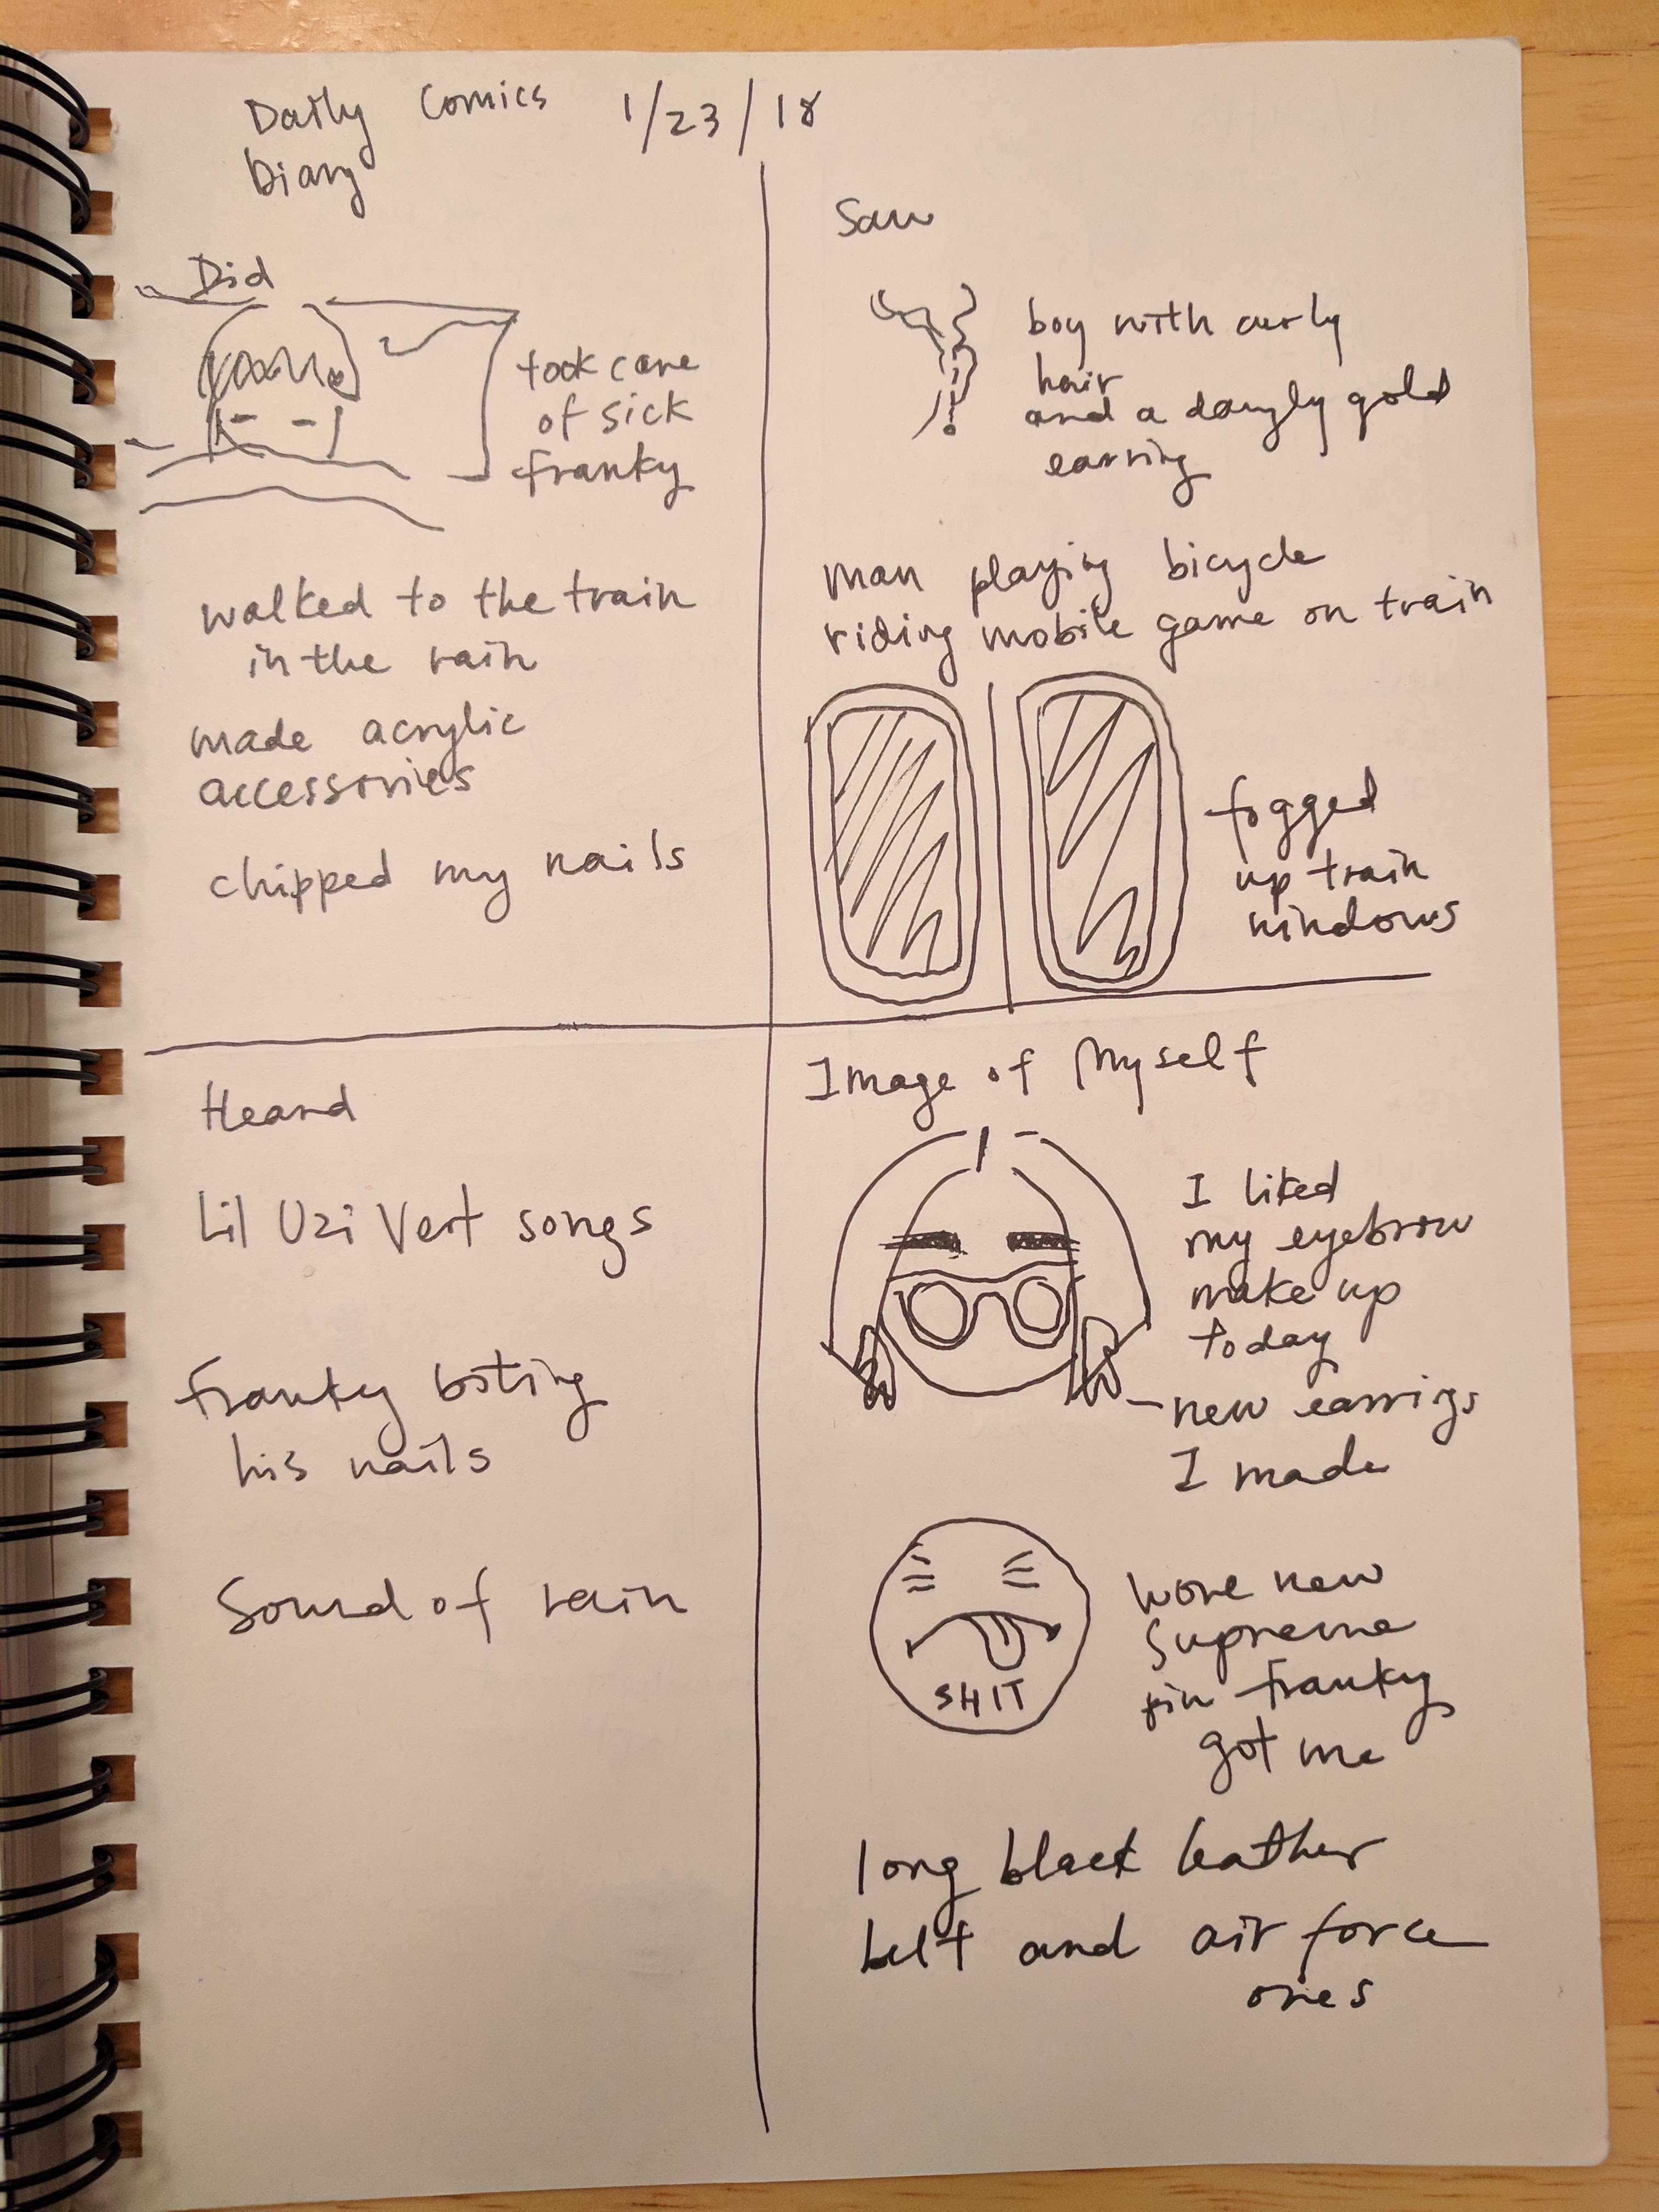 Daily Comics 1/23/18
Diary
Did
took care
of sick
franky
walked to the train
in the rain
made acrylic
accessories
chipped my nails
Saw
boy with curly
hair
and a dangly gold
earring
man playing bicycle
riding mobile game on train
fogged
up train
windows
Heard
Lil Uzi Vert songs
Franky biting
his nails
Sound of rain
Image of Myself
I liked
my eyebrow
make up
today
new earrigs
I made
SHIT
wore new
Supreme
pin Franky
got me
long black leather
belt and air force
ones